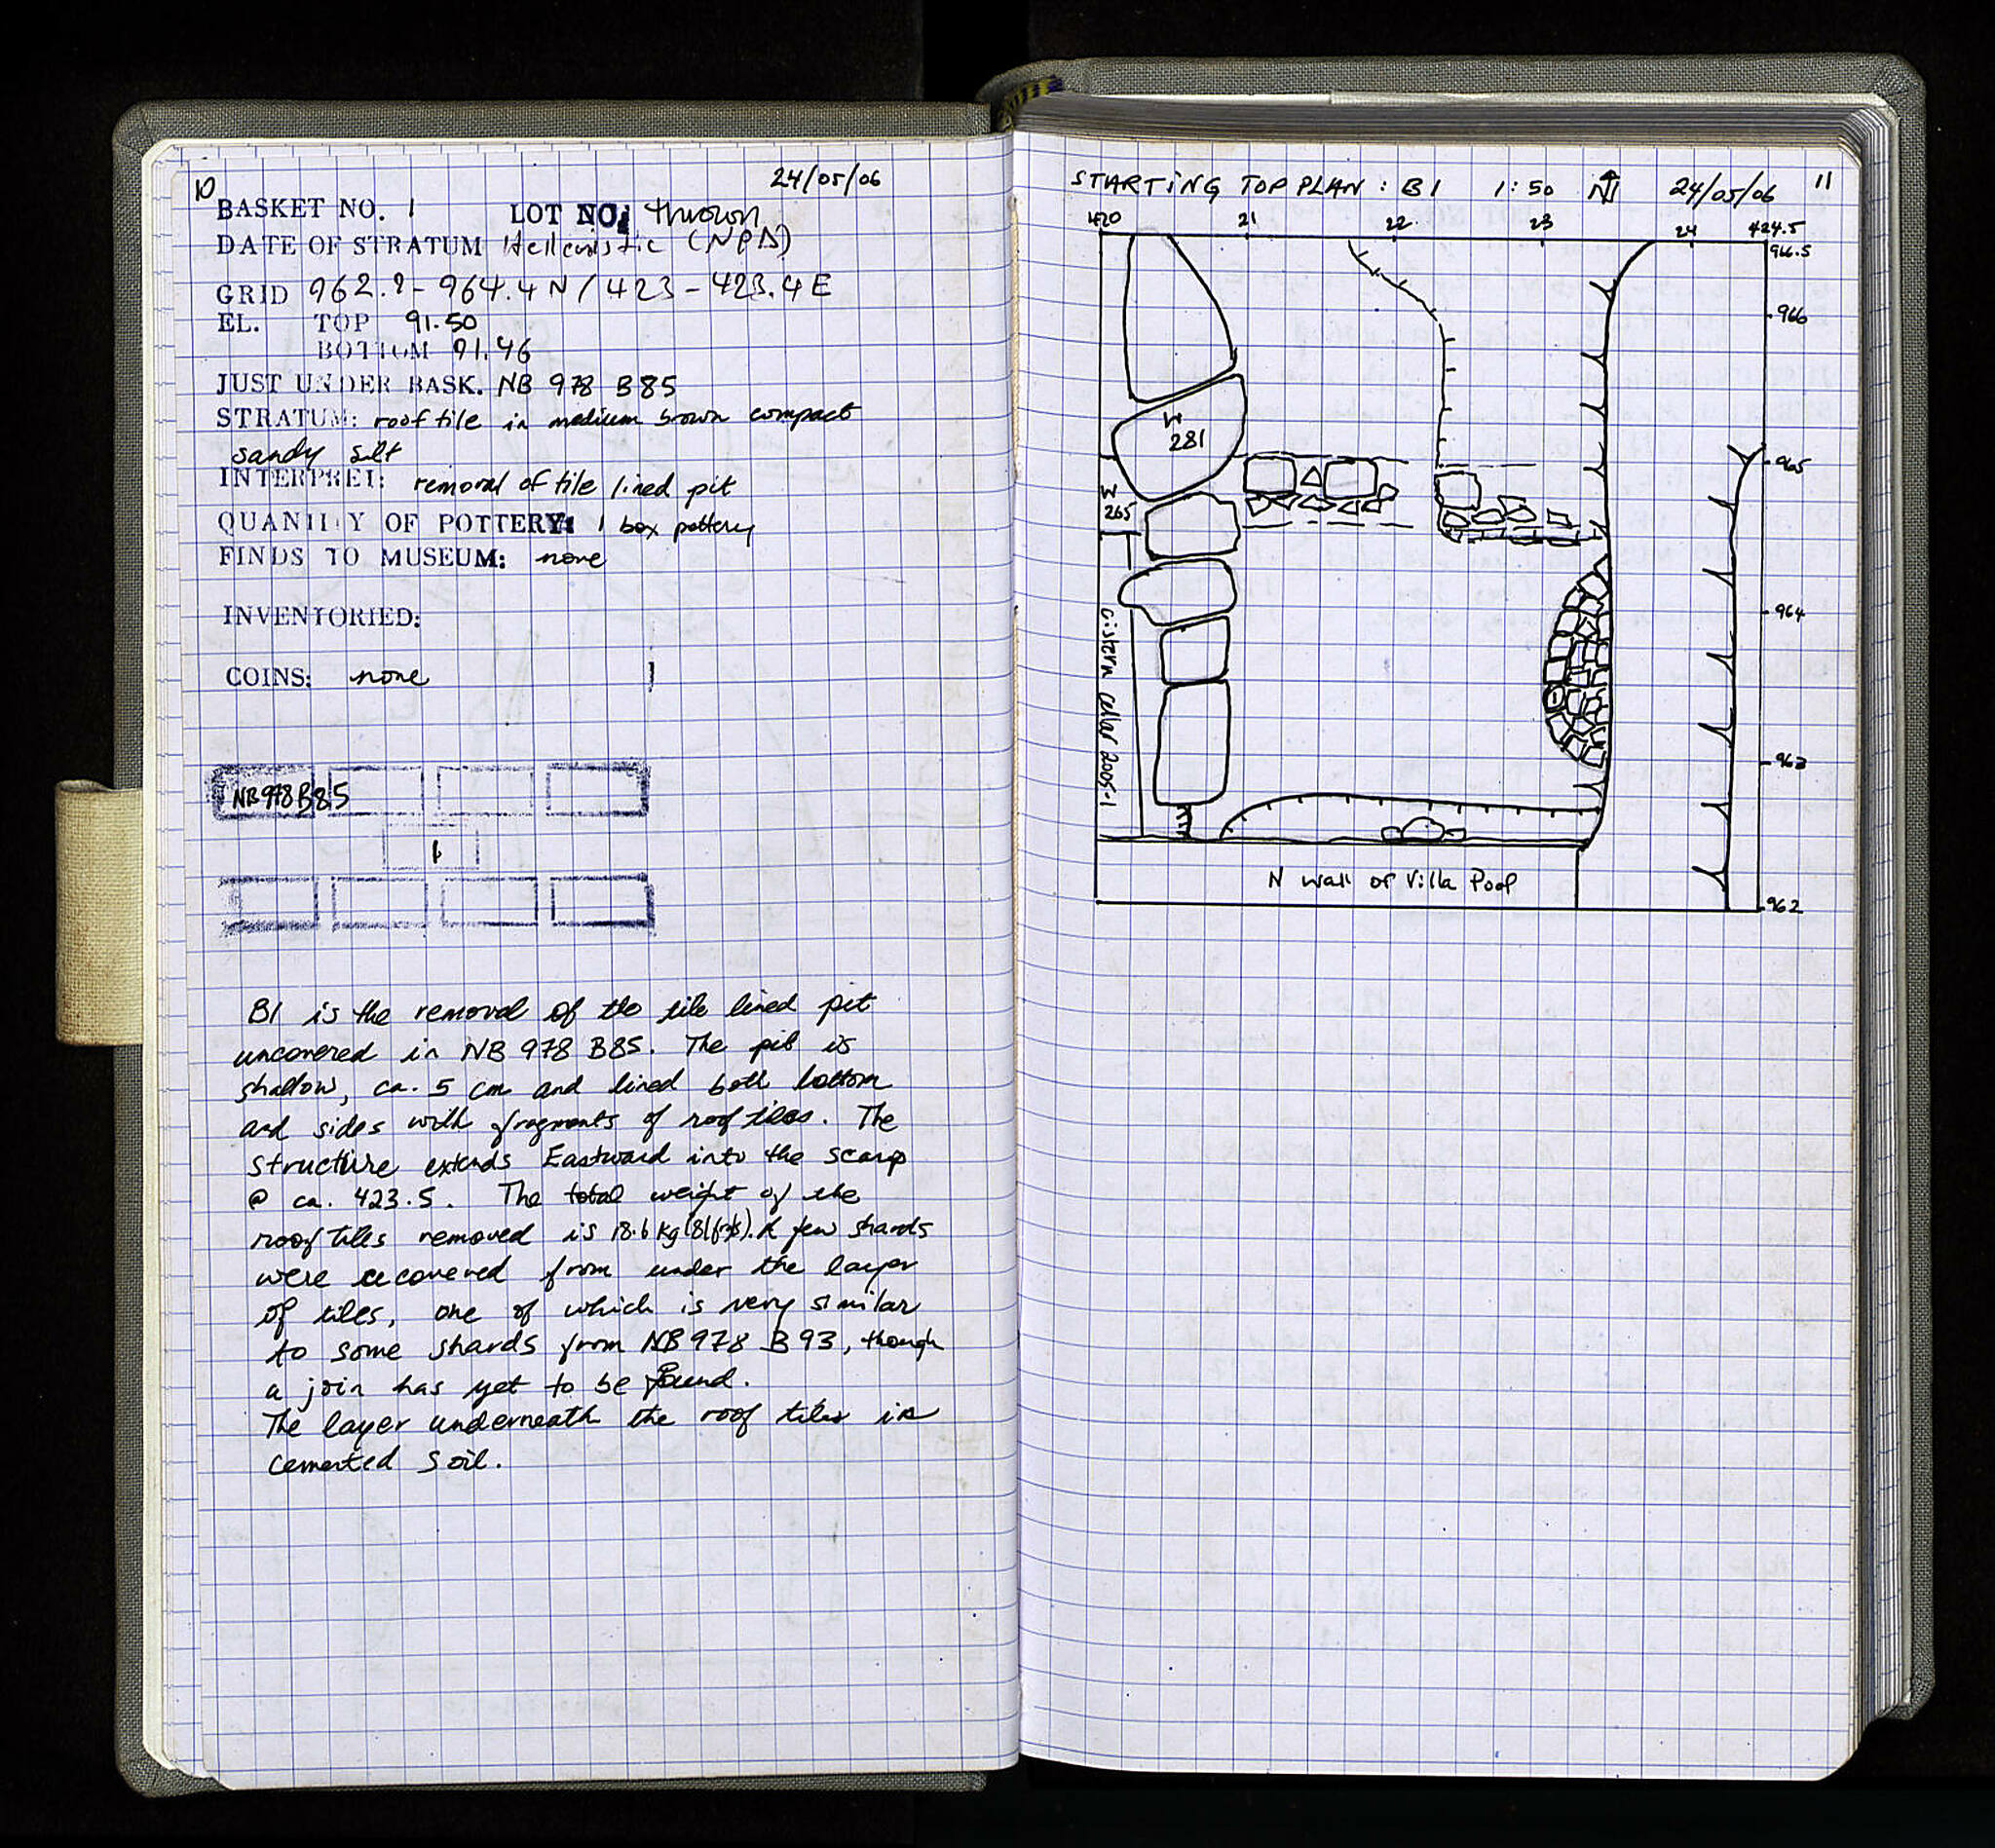 10
24/05/06
BASKET NO. 1 LOT NO: thrown
DATE OF STRATUM Hellenistic (NPD)
GRID 962.9-964.4N / 423-423.4E
EL. TOP 91.50
BOTTOM 91.46
JUST UNDER BASK. NB 978 B85
STRATUM: roof tile in medium brown compact
sandy silt
INTERPRET: removal of tile lined pit
QUANTITY OF POTTERY: 1 box pottery
FINDS TO MUSEUM: none
INVENTORIED:
COINS: none
NB 978 B85
1
B1 is the removal of the tile lined pit
uncovered in NB 978 B85. The pit is
shallow, ca. 5 cm and lined both bottom
and sides with fragments of roof tiles. The
structure extends Eastward into the scarp
@ ca. 423.5. The total weight of the
roof tiles removed is 18.6 kg (81 frgs). A few shards
were recovered from under the layer
of tiles, one of which is very similar
to some shards from NB 978 B93, though
a join has yet to be found.
The layer underneath the roof tiles is
cemented soil.
STARTING TOP PLAN: B1 1:50 N 24/05/06 11
420 21 22 23 24 424.5
966.5
966
W
281
965
W
265
964
cistern cellar 2005-1
963
N wall of Villa Pool
962